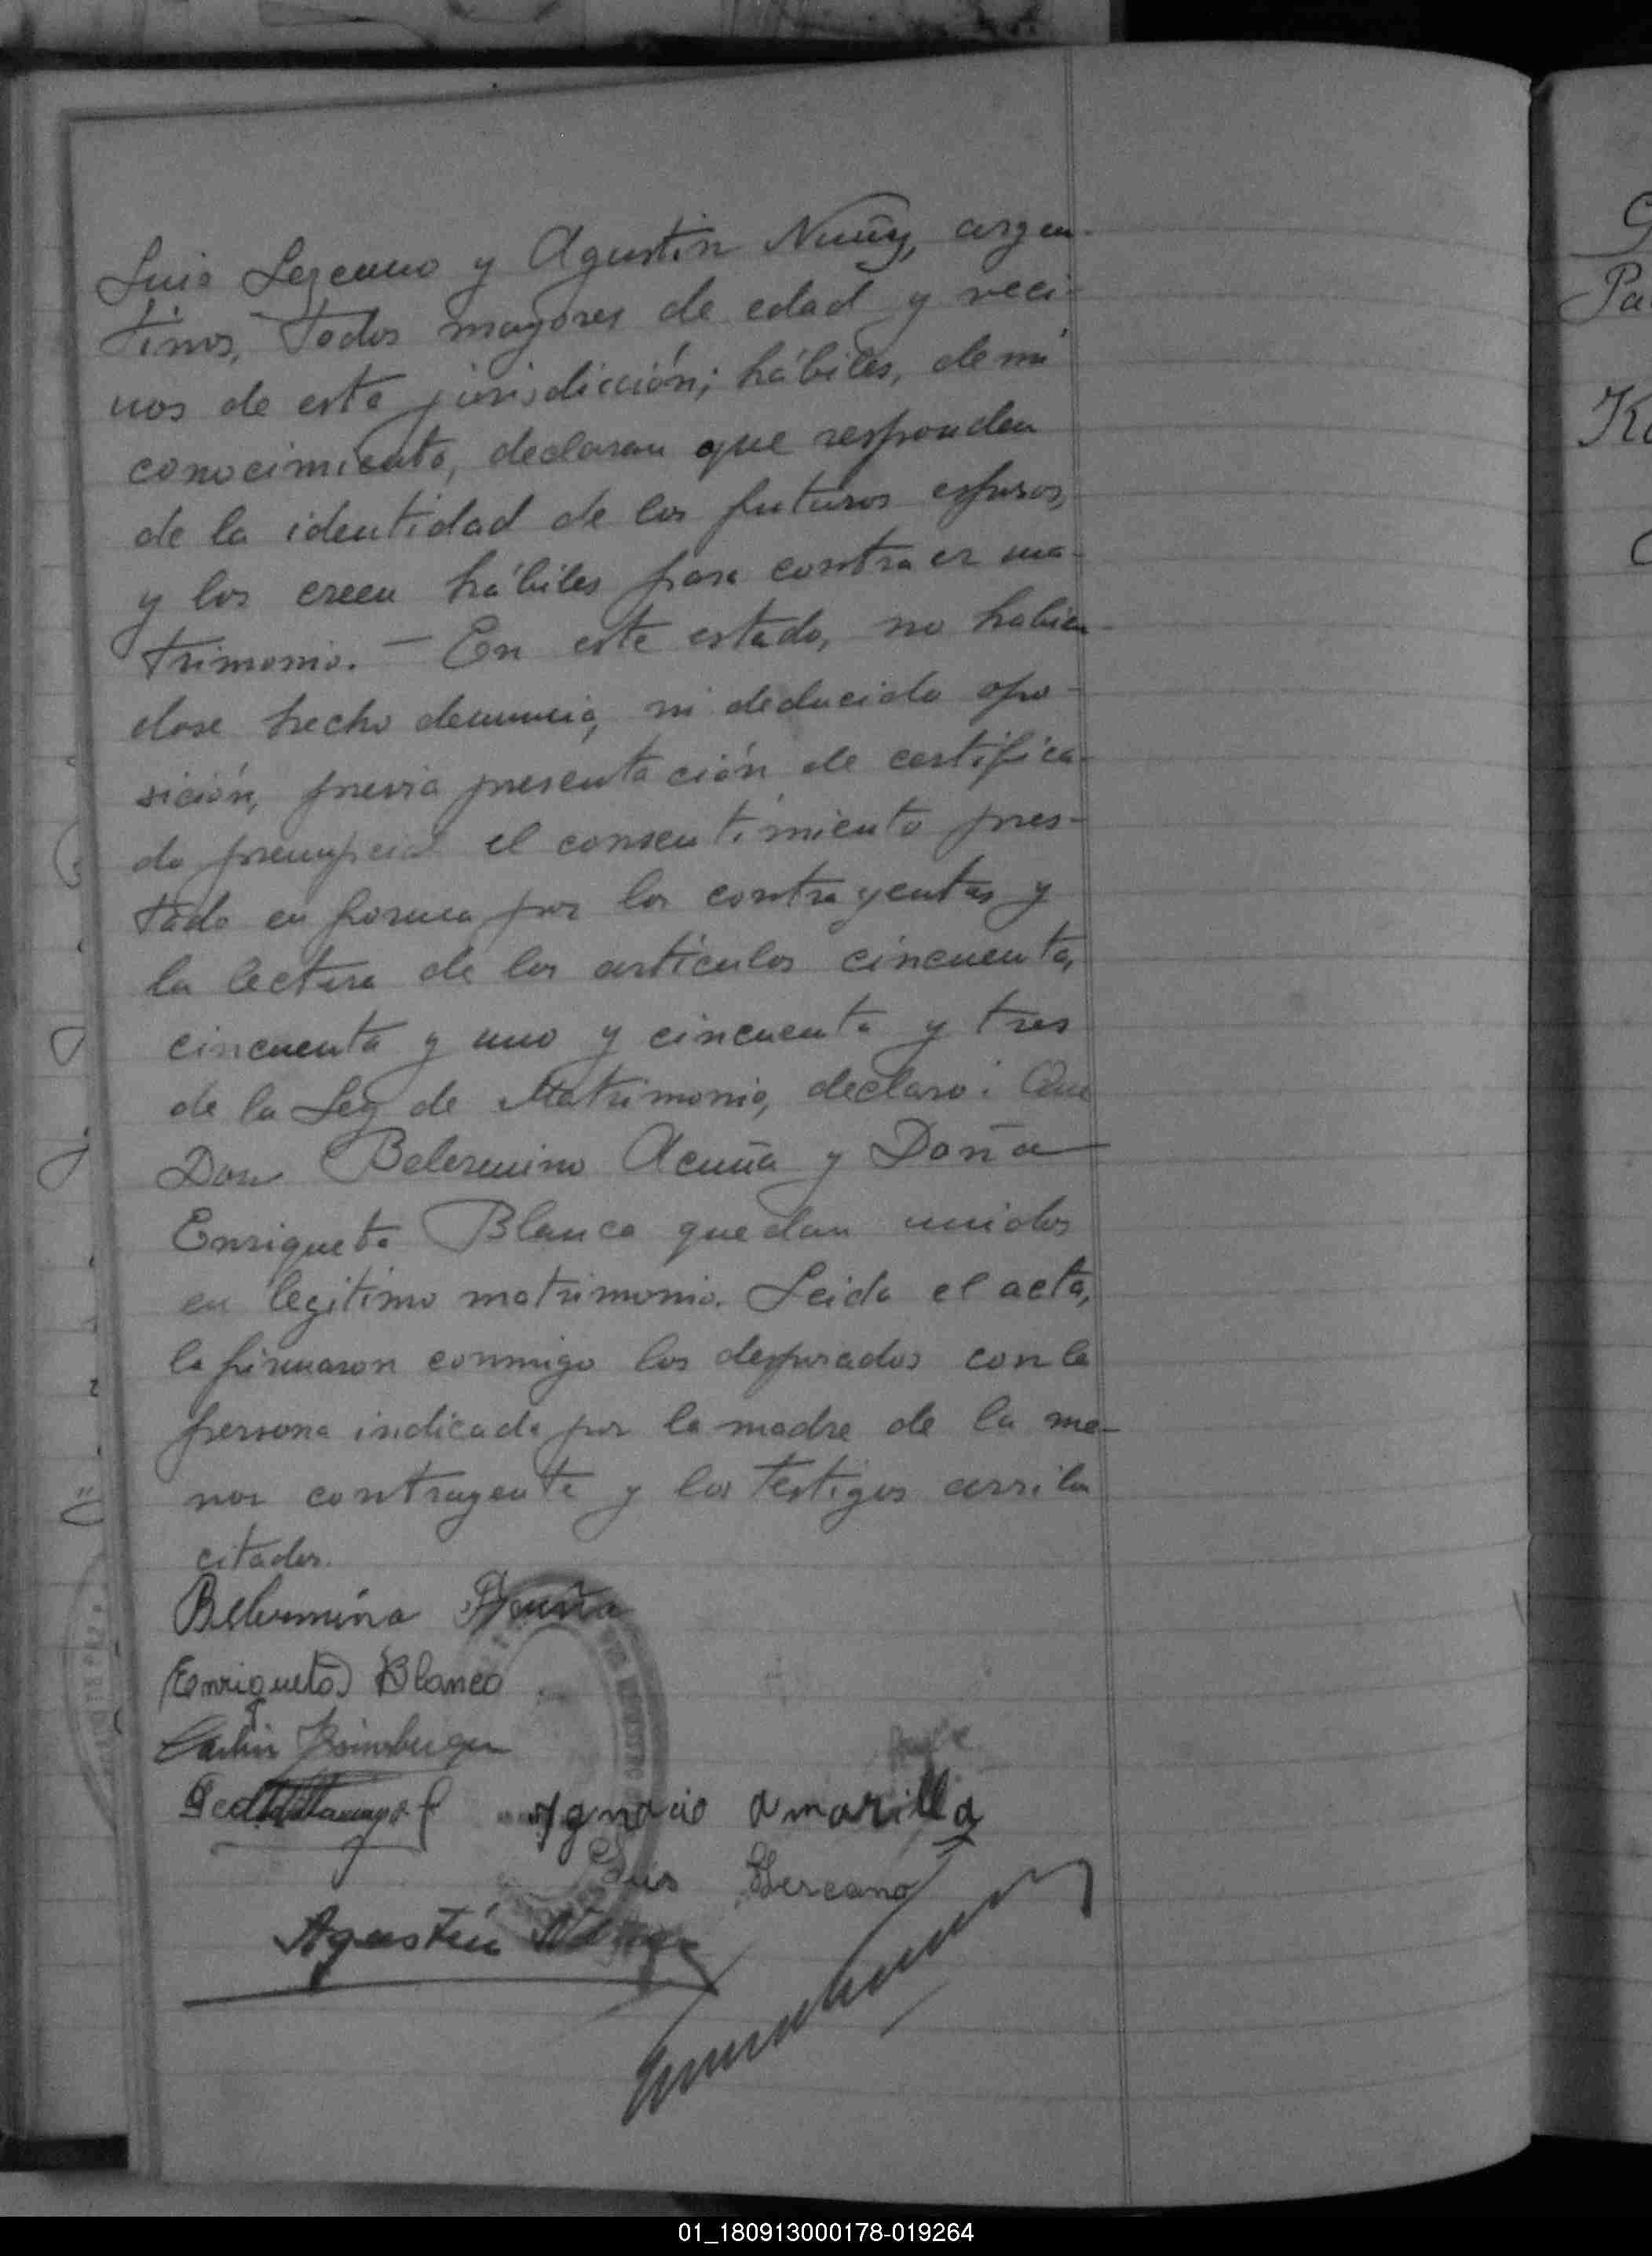 Luis Lezcano y Agustin Nuñez, argen-
tinos, todos mayores de edad y veci-
nos de esta jurisdicción; hábiles, de mi
conocimiento, declaran que responden
de la identidad de los futuros esposos,
y los creen hábiles para contraer ma-
trimonio. — En este estado, no habien-
dose hecho denuncia, ni deducido opo-
sición, previa presentación de certifica-
do prenupcial el consentimiento pres-
tado en forma por los contrayentes y
la lectura de los artículos cincuenta,
cincuenta y uno y cincuenta y tres
de la Ley de Matrimonio, declaro: Que
Don Belermino Acuña y Doña
Enriqueta Blanco quedan unidos
en legitimo matrimonio. Leida el acta,
la firmaron conmigo los desposados con la
persona indicada por la madre de la me-
nor contrayente y los testigos arriba
citados.
Belermino Acuña
Enriqueta Blanco
Ygnacio Amarilla
Luis Lercano
Agustín
01_180913000178-019264